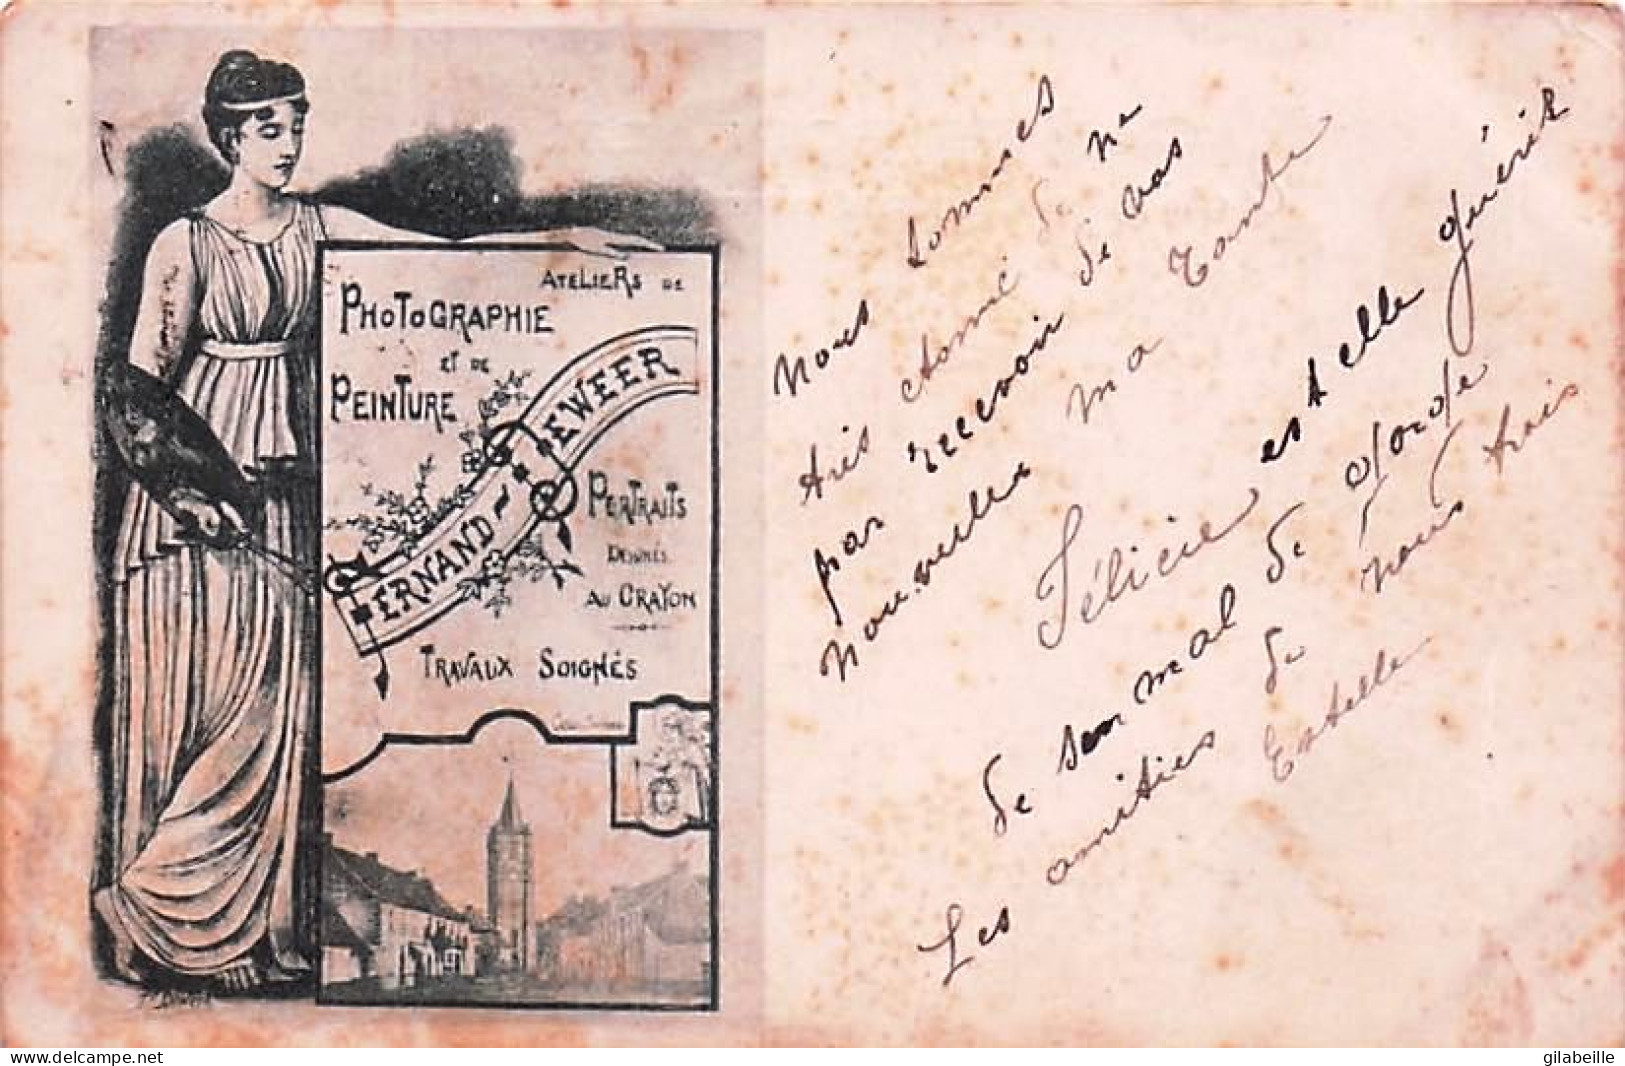 ATELIERS DE
PHOTOGRAPHIE
ET DE
PEINTURE
FERNAND DEWEER
PERTRAITS
DESSINÉS
AU CRAYON
TRAVAUX SOIGNÉS
Nous sommes
très étonné de ne
pas reecevoir de vos
nouvelles ma Tante
Félicie est elle guérit
de son mal de gorge
Les amities de nous trois
Estelle
www.delcampe.net
gilabeille